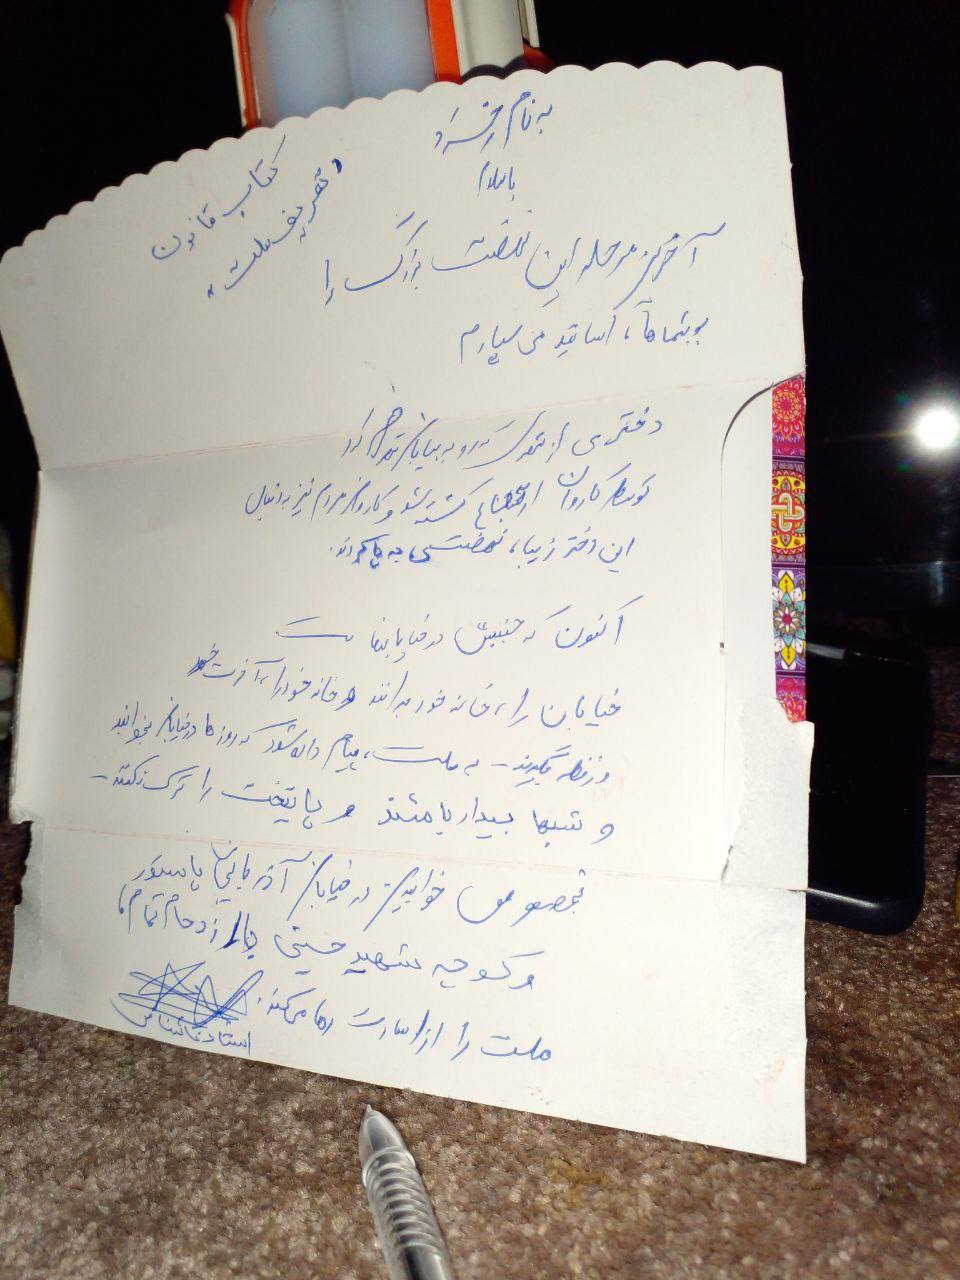 به نام
با سلام
کتاب قانون
آخرین مرحله این نهضت بزرگ را
به شماها، اساتید می سپارم
دختری از شهری که رو به بیابان
توسط کاروان ارتجاع کشته شد و کاروان مردم نیز به دنبال
این دختر زیبا، نهضتی به پا کردند.
اکنون که جنبش در خیابانهاست
خیابان را، خانه خود بدانند و خانه خود را، آخرت خود
در نظر بگیرند - به ملت، پیام داده شود که روزها در خیابان بخوابند
و شبها بیدار باشند و پایتخت را ترک نکنند -
بخصوص خوابیدن در خیابان آذربایجان پاستور
و کوچه شهید حسینی با ازدحام تمام،
ملت را از اسارت رها میکند.
استاد